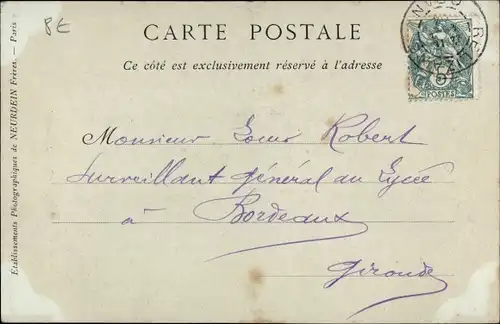 8€
CARTE POSTALE
Ce côté est exclusivement réservé à l'adresse
POSTES
Monsieur Louis Robert
Surveillant Général au Lycée
à Bordeaux
Gironde
Etablissements Photographiques de NEURDEIN Frères. — Paris